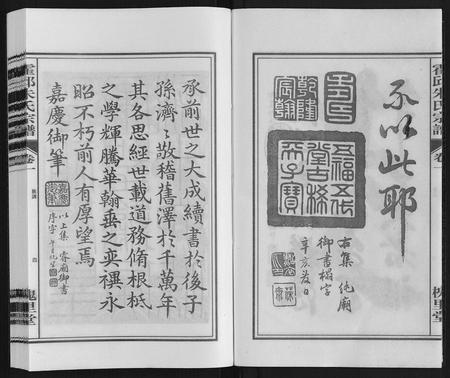 不以此耶
乾隆宸翰
五福五代堂古稀天子寶
右集 純廟
御書楹字
辛亥春日
霍邱朱氏宗譜
卷一
槐里堂
承前世之大成續書於後子
孫濟濟敬稽舊澤於千萬年
其各思經世載道務脩根柢
之學輝騰華翰垂之奕禩永
昭不朽前人有厚望焉
嘉慶御筆
以上集 睿廟御書
序字
霍邱朱氏宗譜
卷一
槐里堂